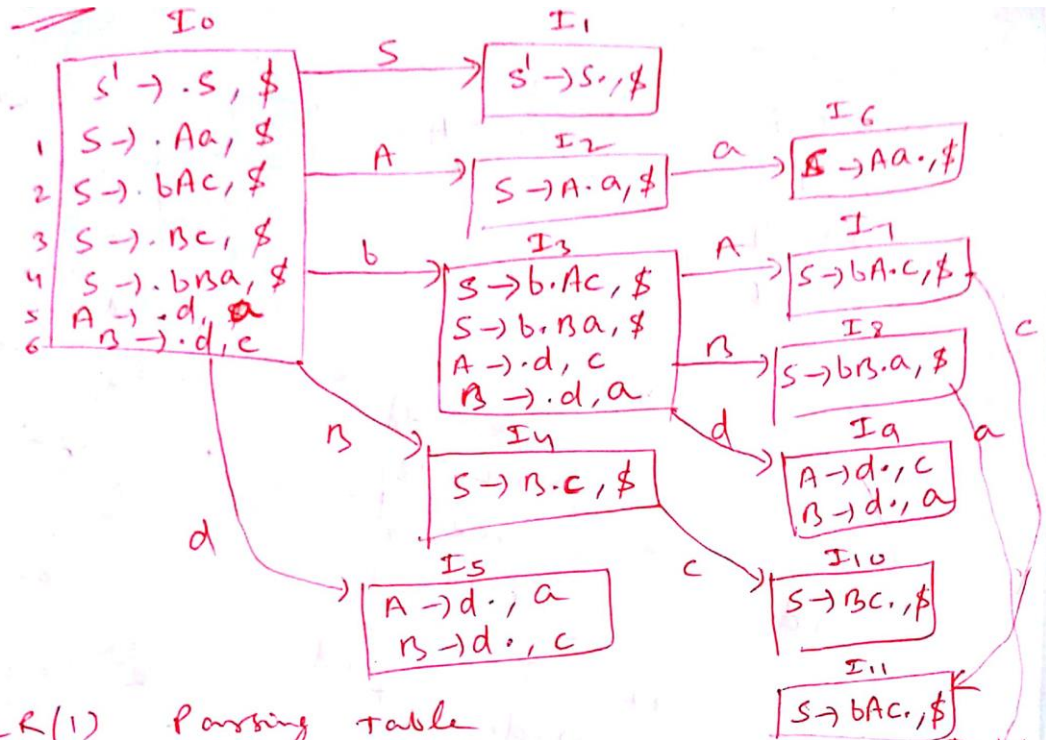 I0
S' → .S, $
1 S → .Aa, $
2 S → .bAc, $
3 S → .Bc, $
4 S → .bBa, $
5 A → .d, a
6 B → .d, c
S
I1
S' → S., $
A
I2
S → A.a, $
a
I6
S → Aa., $
b
I3
S → b.Ac, $
S → b.Ba, $
A → .d, c
B → .d, a
A
I7
S → bA.c, $
c
B
I8
S → bB.a, $
a
d
I9
A → d., c
B → d., a
B
I4
S → B.c, $
c
I10
S → Bc., $
d
I5
A → d., a
B → d., c
I11
S → bAc., $
LR(1) Parsing table